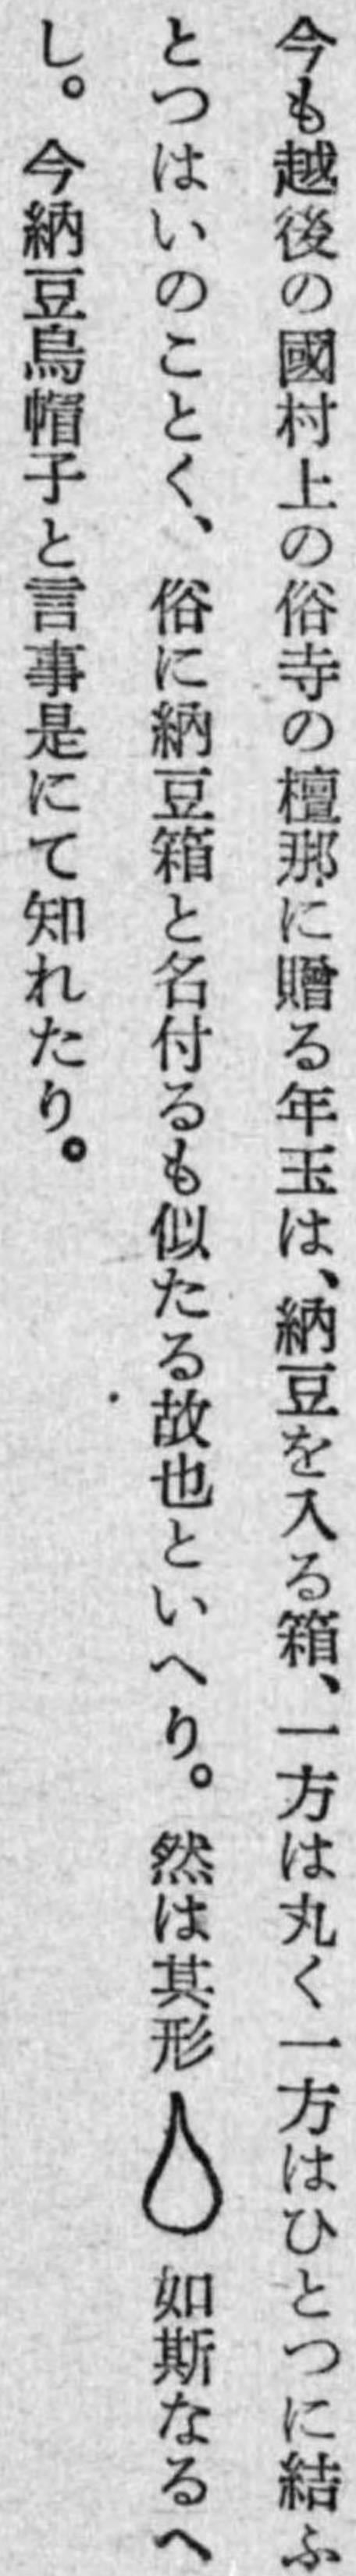 今も越後の國村上の俗寺の檀那に贈る年玉は、納豆を入る箱、一方は丸く一方はひとつに結ふ
とつはいのことく、俗に納豆箱と名付るも似たる故也といへり。然は其形 如斯なるへ
し。今納豆烏帽子と言事是にて知れたり。